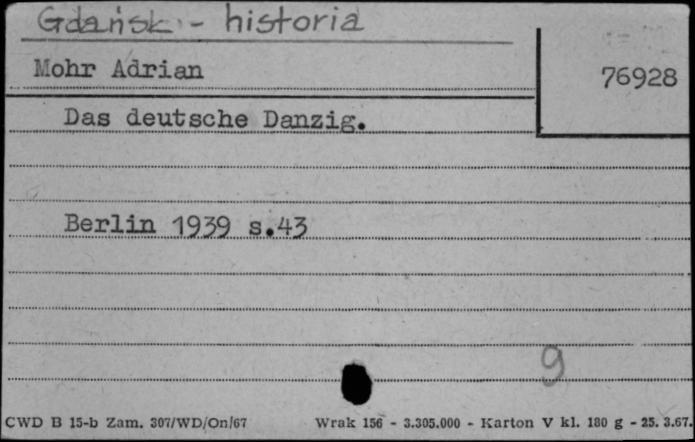 Gdańsk - historia
Mohr Adrian
76928
Das deutsche Danzig.
Berlin 1939 s.43
9
CWD B 15-b Zam. 307/WD/On/67 Wrak 156 - 3.305.000 - Karton V kl. 180 g - 25. 3.67.